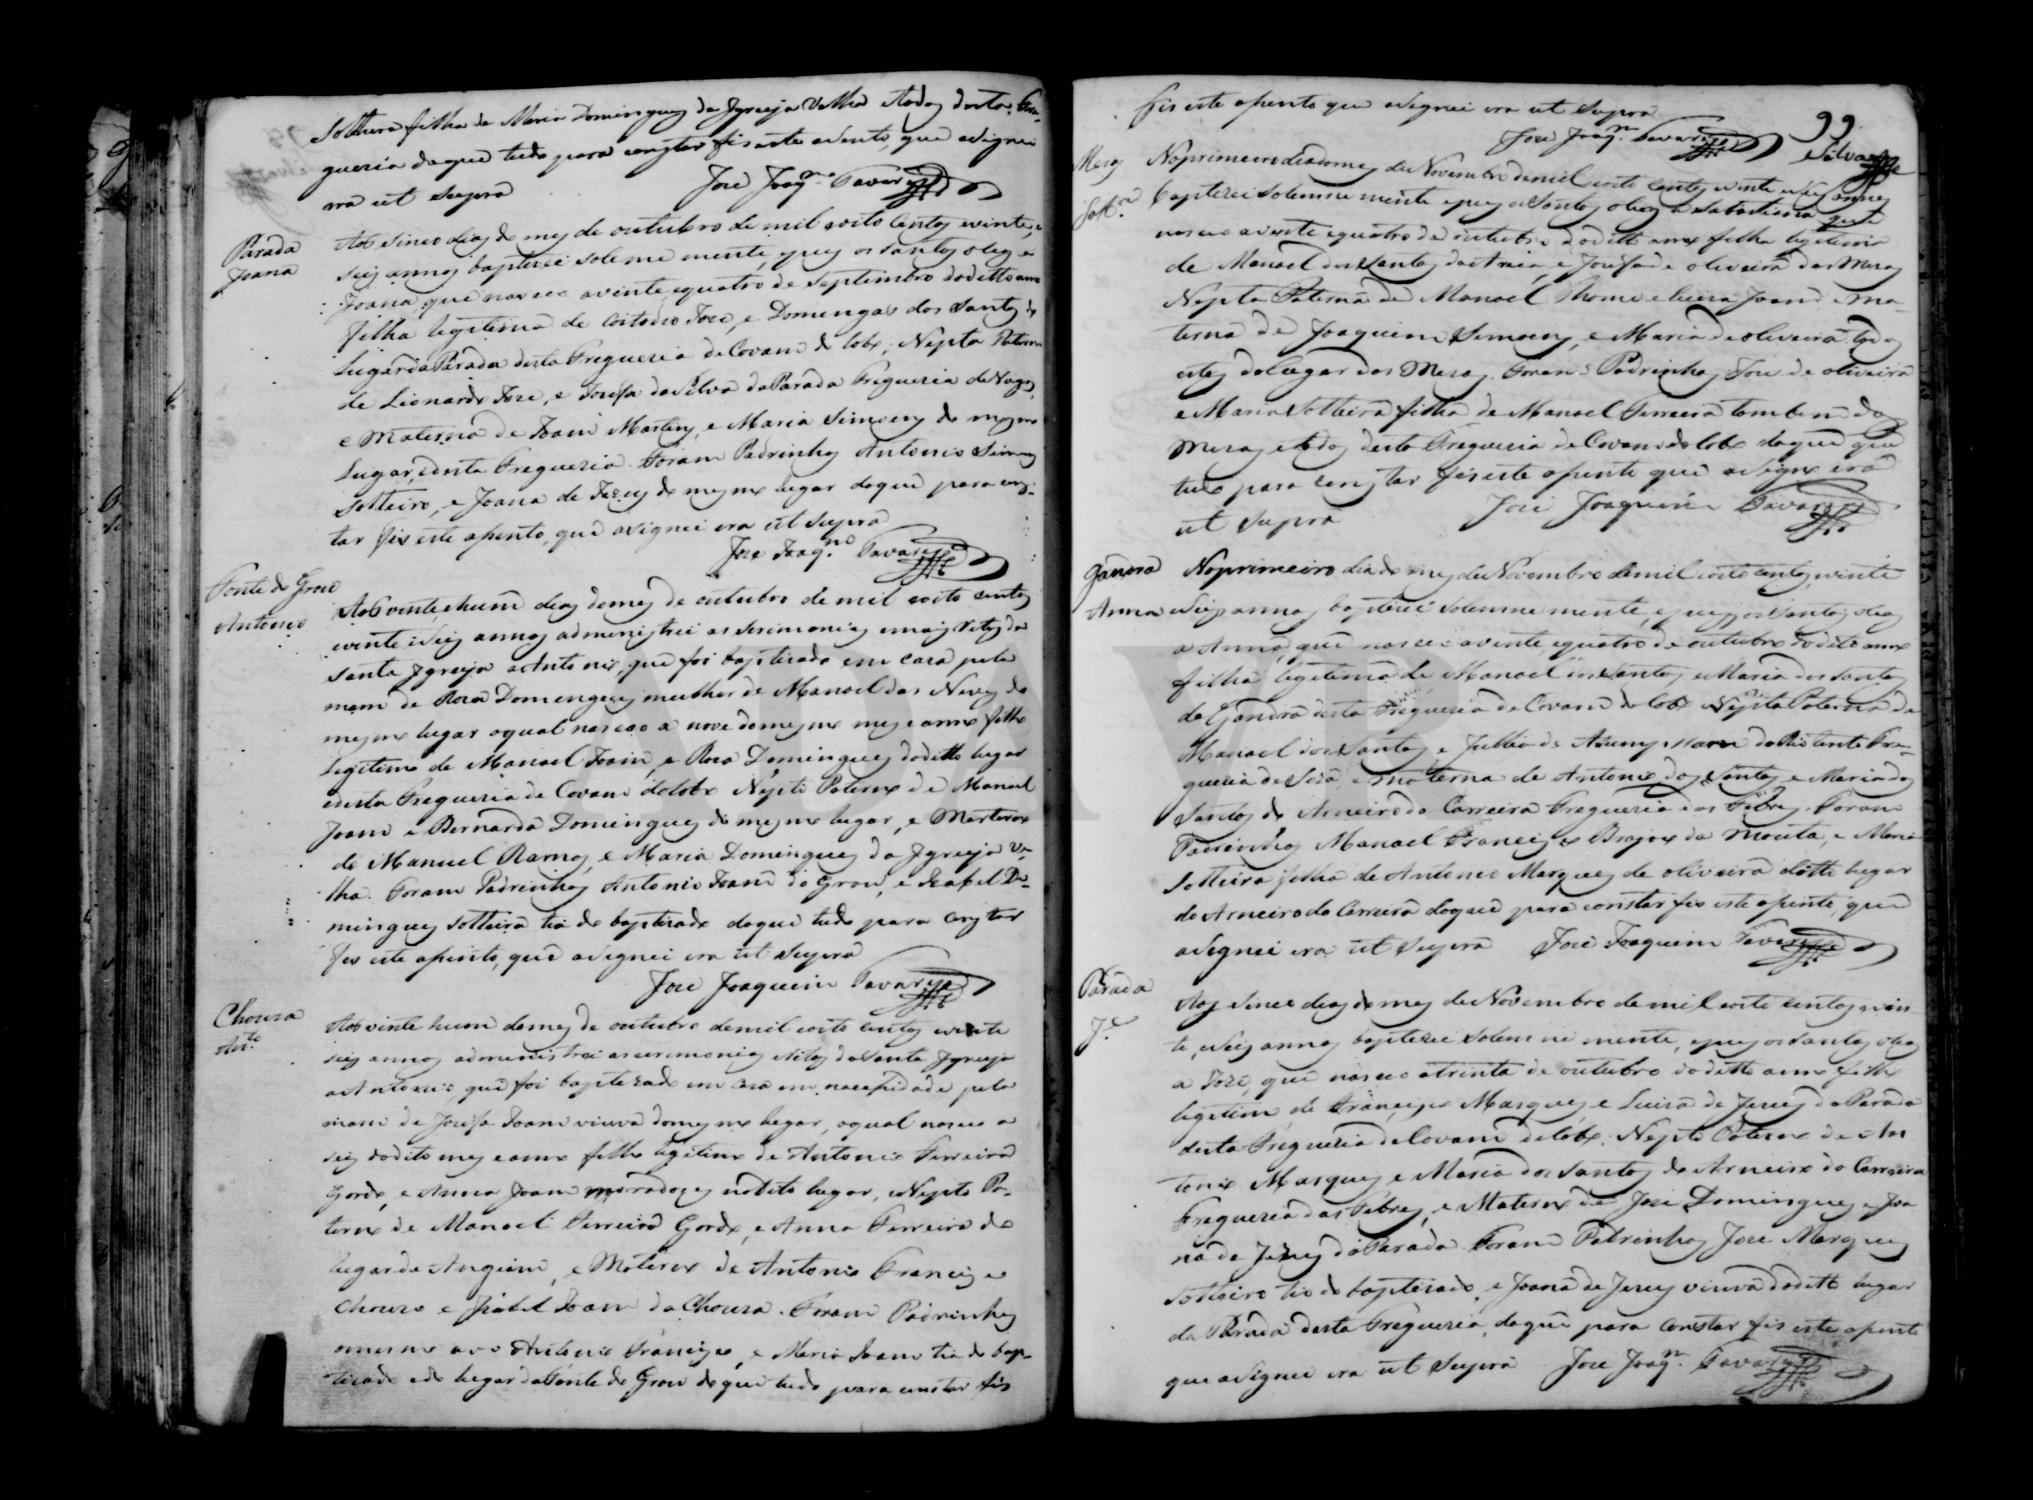 solteira filha de Maria Domingues da Igreja Velha etodos desta Fre-
guezia doque tudo para constar fis este acento, que asignei
era ut supra José Joaq.m Tavares
Parada
Joana
Aos sinco dias do mes de outubro de mil oito centos evinte, e
seis annos baptizei solemne mente, epus os santos oleos a
Joana, que nasceo avinte, equatro de Septembro dodetto anno
filha legitima de Costodio Jozé, e Domingas dos Santos do
Lugar da Parada desta Freguezia deCovam do Lobo, Nepta Paterna
de Lionardo Joze, e Josefa daSilva daParada Freguezia deVagos,
e Materna de Joam Martins, e Maria Simoens do mesmo
Lugar, edesta Freguezia. Foram Padrinhos Antonio Simoens
solteiro, e Joana de Jezus do mesmo lugar doque para cons-
tar fis este acento, que asignei era ut supra
Joze Joaq.m Tavares
Fonte do Grou
Antonio
Aos vinte, ehum dias domes de outubro de mil oito centos
evinte eseis annos administrei as serimonias emais Ritos da
santa Igreja aAntonio, que foi baptizado em caza pela
mam de Roza Domingues mulher de Manoel das Neves do
mesmo lugar oqual nasceo a nove domesmo mes eanno filho
legitimo de Manoel Joam, e Roza Domingues doditto lugar
edesta Freguezia de Covam dolobo Nepto Paterno de Manoel
Joam e Bernarda Domingues do mesmo lugar, e Materno
de Manuel Ramos, e Maria Domingues da Igreja Ve-
lha. Foram Padrinhos Antonio Joam do Grou, e Izabel Do-
mingues solteira tia do baptizado doque tudo para constar
fis este acento, que asignei era ut supra
José Joaquim Tavares
Choura
Ant.o
Aos vinte hum domes de outubro demil oito centos evinte
seis annos administrei as cerimonias eRitos daSanta Igreja
aAntonio que foi baptizado em caza em nacessidade pela
mam de Josefa Joam viuva domesmo lugar, oqual nasceo a
seis dodito mes eanno filho legitimo de Antonio Ferreira
Gordo, e Anna Joam moradores nodito lugar, eNepto Pa-
terno de Manoel Ferreira Gordo, e Anna Ferreira do
lugar de Angiam, e Materno de Antonio Francisco
Chouro e Izabel Joam da Choura. Foram Padrinhos
omesmo avo Antonio Francisco, e Maria Joam tia do bap-
tizado edo lugar daFonte do Grou doque tudo para constar fis
fis este acento que asignei era ut supra
José Joaq.m Tavares
99
Silva
Mesas
Noprimeiro diadomes deNovembro demil oito centos evinte eseis annos
baptizei solemne mente epus osSantos oleos a Sabastiana que
nasceo avinte equatro de outubro doditto anno filha legitima
de Manoel dosSantos daAreia, e Josefa de oliveira das Mesas
Nepta Paterna de Manoel Thome e Luiza Joam e ma-
terna de Joaquim Simoens, e Maria deoliveira todos
estes doLugar das Mesas. Foram Padrinhos Joze de oliveira
e Maria solteira filha de Manoel Ferreira tambem das
Mesas etodos desta Freguezia deCovam dolobo doque que
tudo para constar fis este acento que asignei era
ut supra José Joaquim Tavares
Gandra
Anna
Noprimeiro dia do mes deNovembro demil oito centos, evinte
eseis annos baptizei solemne mente, epus osSantos oleos
a Anna, que nasceo avinte equatro de outubro doditto anno
filha legitima de Manoel dosSantos eMaria dosSantos
da Gandra desta Freguezia deCovam do lobo Nepta Paterna de
Manoel dosSantos e Fre-
guezia de Soza, e materna de Antonio dos Santos e Maria dos
Santos do Arneiro da Carreira Freguezia das Febres. Foram
Padrinhos Manoel Francisco da Mouta, e Maria
solteira filha de Antonio Marques de oliveira ditto lugar
do Arneiro da Carreira doque para constar fis este acento, que
asignei era ut supra José Joaquim Tavares
Parada
J.e
Aos sinco dias do mes deNovembro de mil oito centos evin-
te, eseis annos baptizei solemne mente, epus osSantos oleos
a José, que nasceo atrinta de outubro doditto anno filho
legitimo de Francisco Marques, e Luiza de Jezus da Parada
desta Freguezia deCovam dolobo. Nepto Paterno de An
tonio Marques e Maria dos Santos do Arneiro da Carreira
Freguezia das Febres, e Materno de José Domingues e Joa
na de Jezus daParada. Foram Padrinhos José Marques
solteiro tio do baptizado, e Joana de Jezus viuva doditto lugar
da Parada desta Freguezia, doque para constar fis este acento
que asignei era ut supra José Joaq.m Tavares